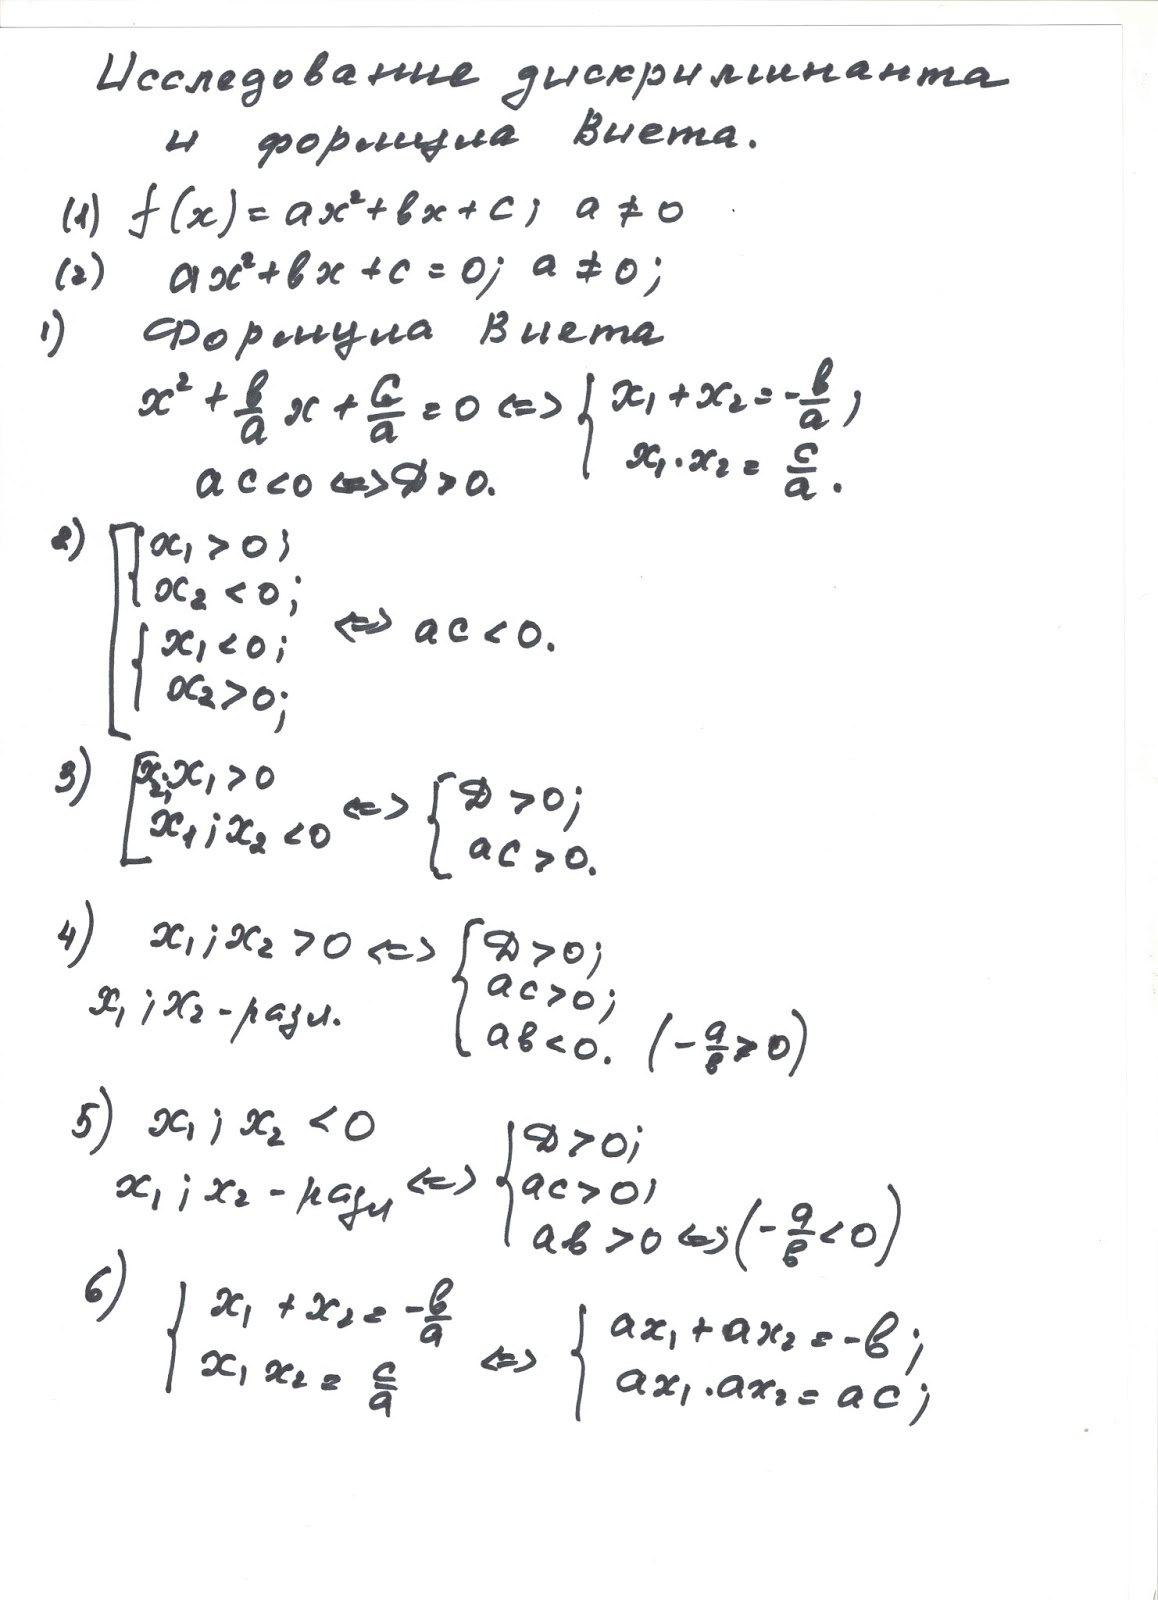 Исследование дискриминанта
и формула Виета.
(1) f(x) = ax² + bx + c; a ≠ 0
(2) ax² + bx + c = 0; a ≠ 0;
1) Формула Виета
x² + b/a x + c/a = 0 <=> { x₁ + x₂ = -b/a;
x₁·x₂ = c/a.
ac < 0 <=> D > 0.
2) [ { x₁ > 0;
x₂ < 0;
{ x₁ < 0;
x₂ > 0;
<=> ac < 0.
3) [ x₂; x₁ > 0
x₁; x₂ < 0
<=> { D > 0;
ac > 0.
4) x₁; x₂ > 0 <=> { D > 0;
x₁; x₂ - разл.
ac > 0;
ab < 0. (-a/b > 0)
5) x₁; x₂ < 0
x₁; x₂ - разл <=> { D > 0;
ac > 0;
ab > 0 <=> (-a/b < 0)
6) { x₁ + x₂ = -b/a
x₁ x₂ = c/a
<=> { ax₁ + ax₂ = -b;
ax₁·ax₂ = ac;